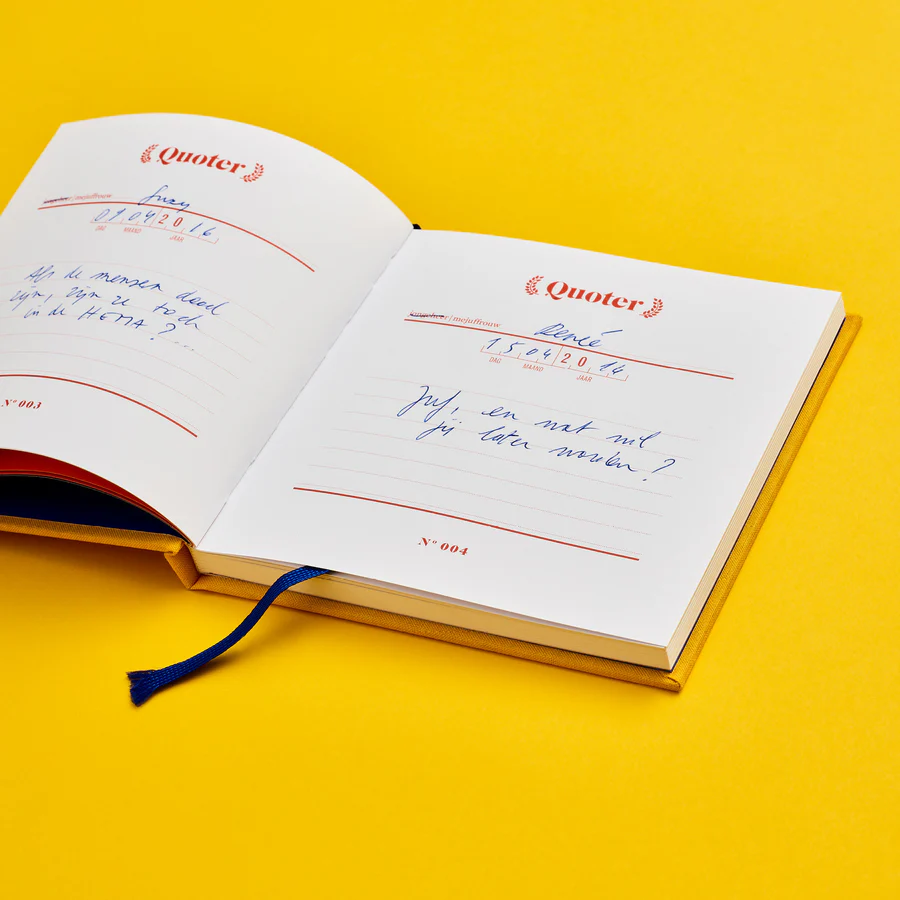 Quoter
jongeheer / mejuffrouw
Suzy
01 04 2016
DAG MAAND JAAR
Als de mensen dood
zijn, zijn ze toch
in de HEMA ?....
Nº 003
Quoter
jongeheer / mejuffrouw
Renée
15 04 2014
DAG MAAND JAAR
Juf, en wat wil
jij later worden ?
Nº 004